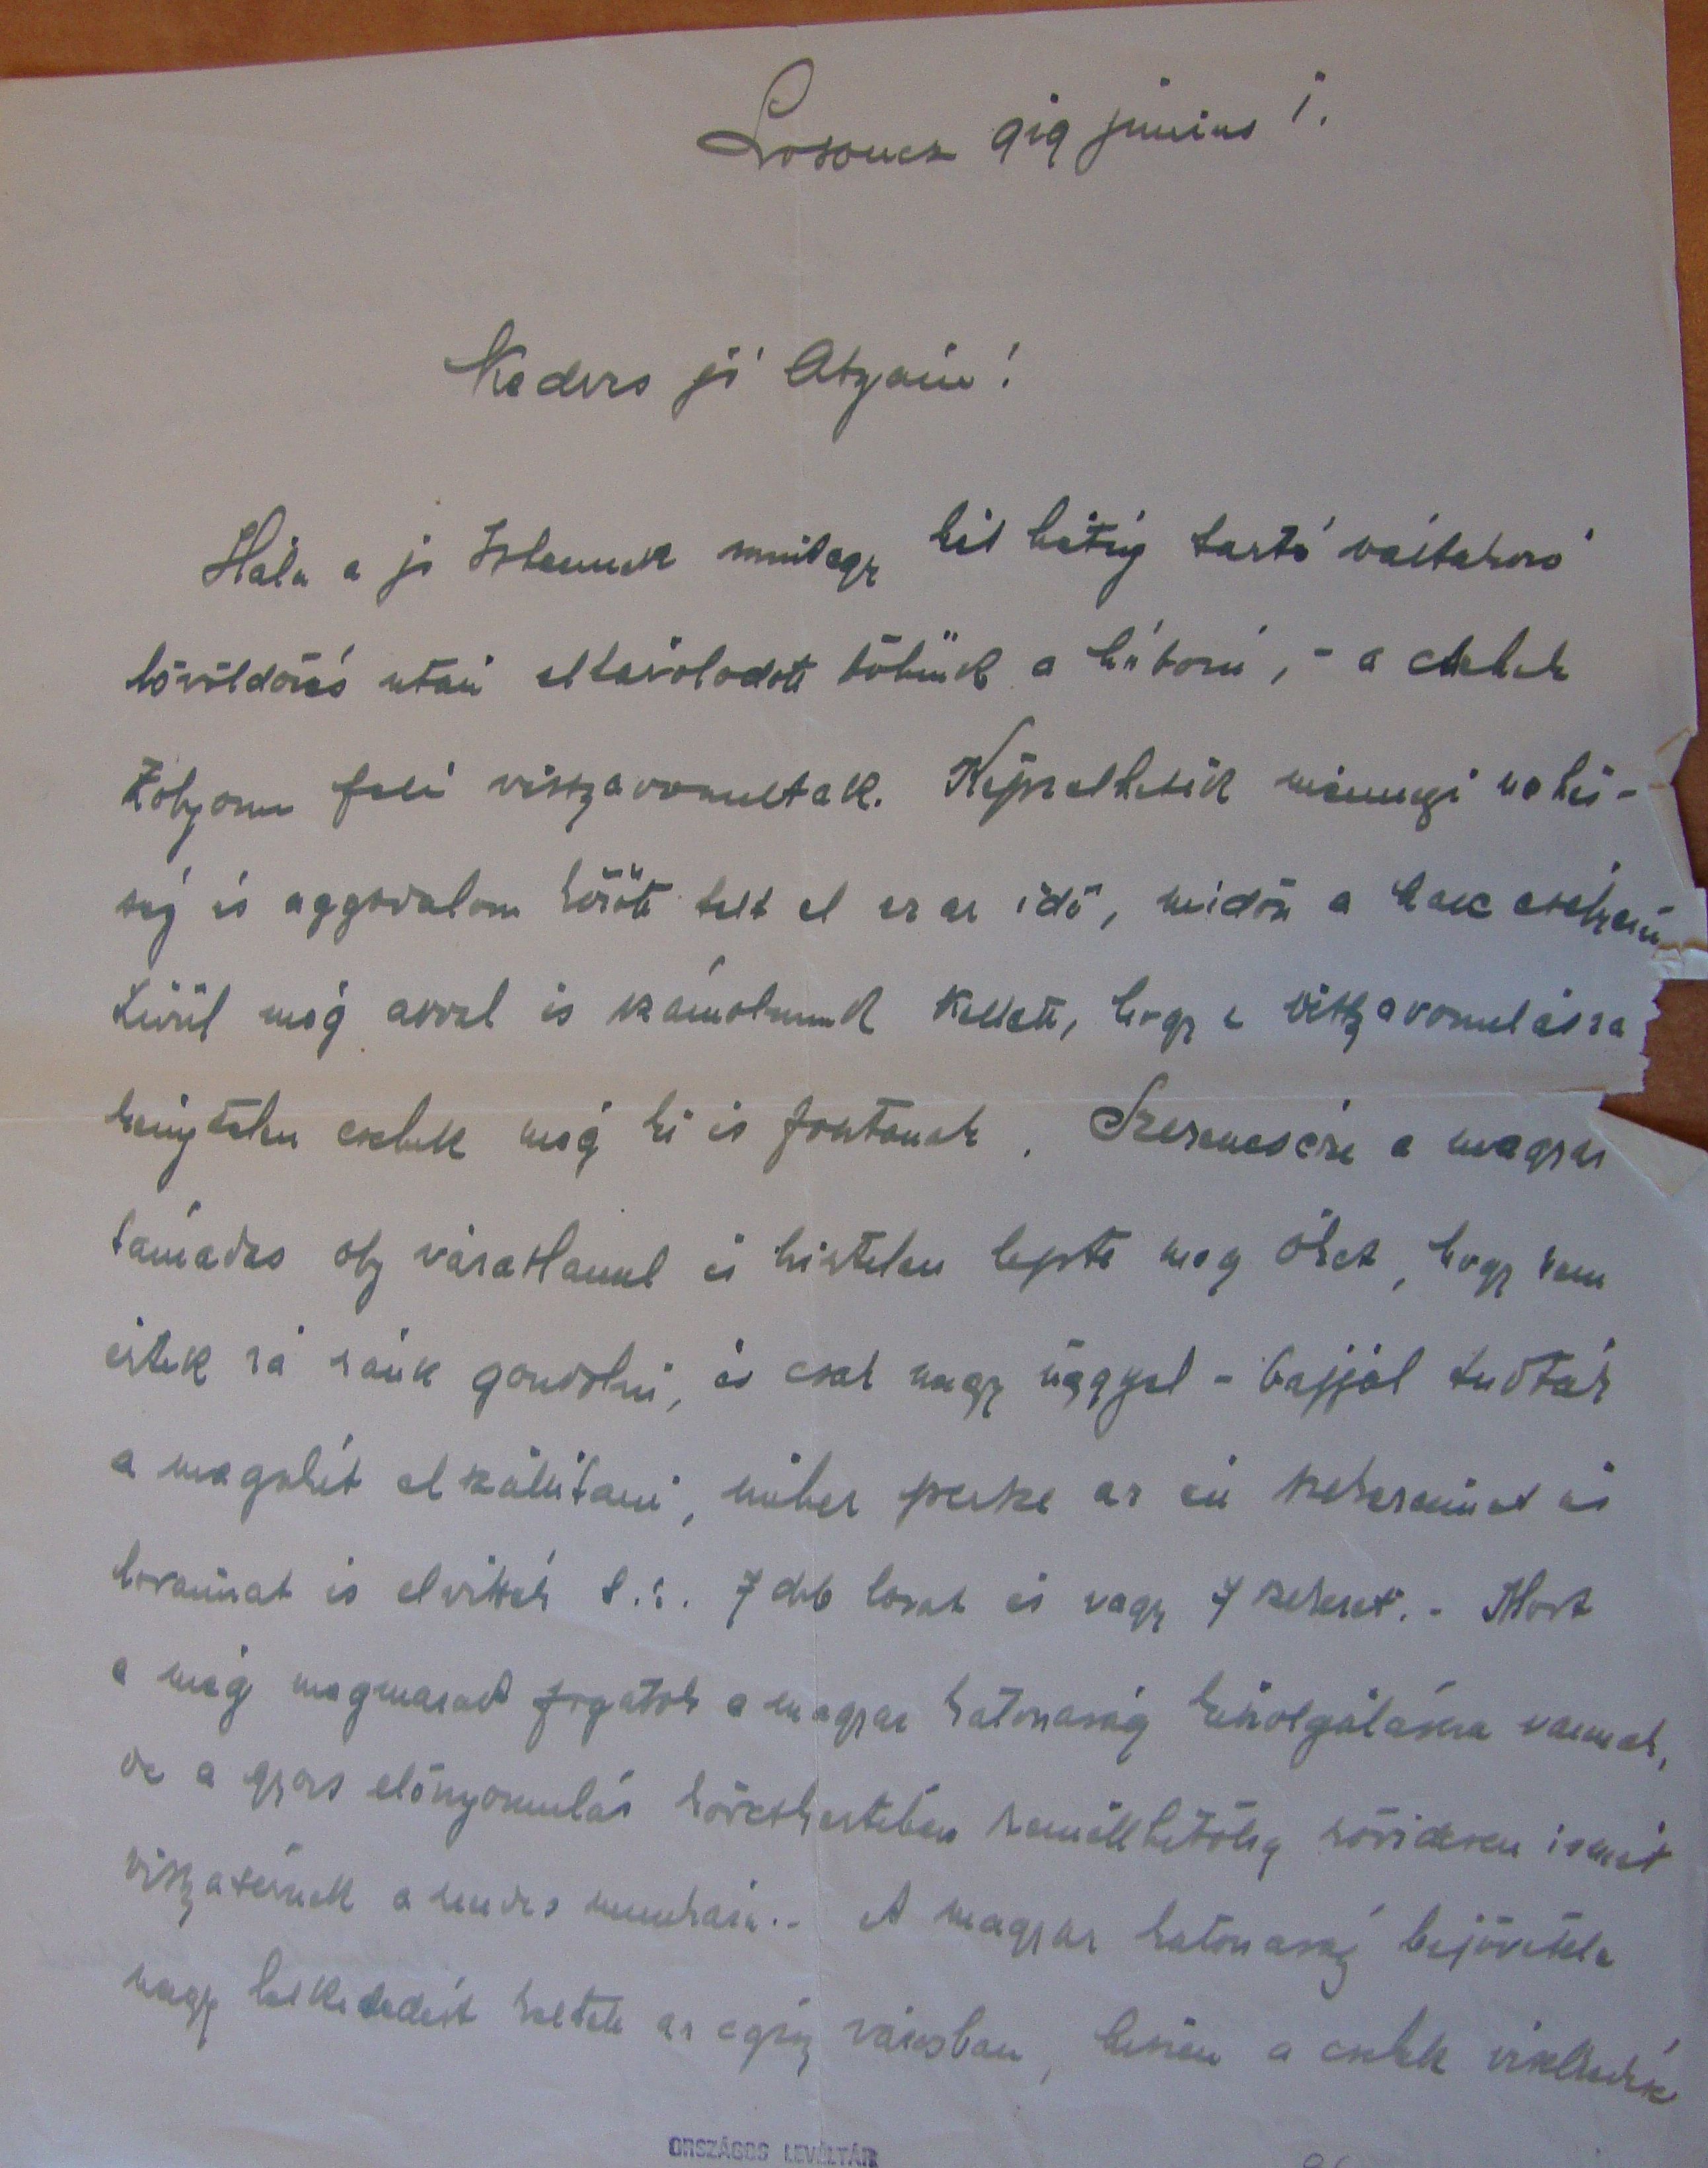 Losoncz 919 június 1.
Kedves jó Atyám!
Hála a jó Istennek mintegy két hétig tartó váltakozó
lövöldözés után eltávolodott tőlünk a háború, - a csehek
Zólyom felé visszavonultak. Képzelhetik mennyi nehéz-
ség és aggodalom között telt el ez az idő, midőn a harc esélyein
kivül még avval is számolnunk kellett, hogy a visszavonulásra
kénytelen csehek még ki is fosztanak. Szerencsére a magyar
támadás oly váratlanul és hirtelen lepte meg őket, hogy nem
értek rá ránk gondolni, és csak nagy üggyel-bajjal tudták
a magokét elszállitani, mihez persze az én szekereimet és
lovaimat is elvitték s.i. 7 deb lovat és vagy 4 szekeret. - Most
a még megmaradt fogatok a magyar katonaság kiszolgálására vannak,
de a gyors előnyomulás következtében remélhetőleg rövidesen ismét
visszatérnek a rendes munkára. - A magyar katonaság bejövetele
nagy lelkesedést keltett az egész városban, hiszen a csehek viselkedése
ORSZÁGOS LEVÉLTÁR